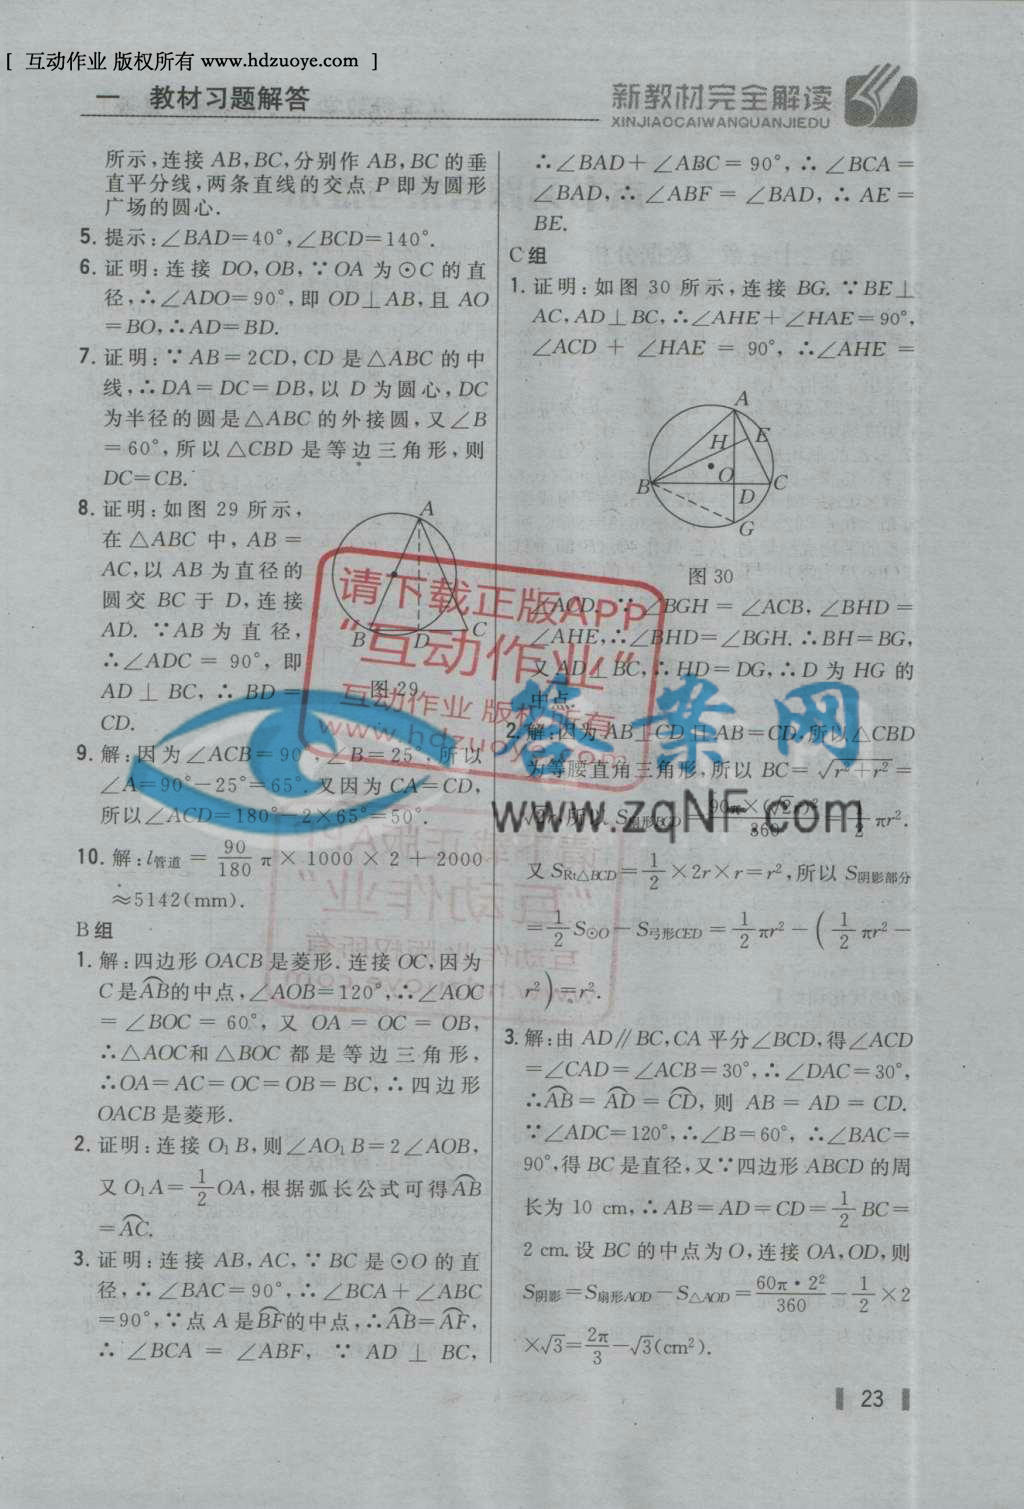 [ 互动作业 版权所有 www.hdzuoye.com ]
一 教材习题解答
新教材完全解读
XINJIAOCAIWANQUANJIEDU
所示,连接 AB,BC,分别作 AB,BC 的垂
直平分线,两条直线的交点 P 即为圆形
广场的圆心.
5. 提示:∠BAD=40°,∠BCD=140°.
6. 证明:连接 DO,OB,∵OA 为⊙C 的直
径,∴∠ADO=90°,即 OD⊥AB,且 AO
=BO,∴AD=BD.
7. 证明:∵AB=2CD,CD 是△ABC 的中
线,∴DA=DC=DB,以 D 为圆心,DC
为半径的圆是△ABC 的外接圆,又∠B
=60°,所以△CBD 是等边三角形,则
DC=CB.
8. 证明:如图 29 所示,
在△ABC 中,AB=
AC,以 AB 为直径的
圆交 BC 于 D,连接
AD.∵AB 为直径,
∴∠ADC = 90°,即
AD ⊥ BC,∴ BD =
CD.
A
B
D
C
图 29
9. 解:因为∠ACB=90°,∠B=25°,所以
∠A=90°-25°=65°.又因为 CA=CD,
所以∠ACD=180°-2×65°=50°.
10. 解:l管道 = 90/180 π×1000×2+2000
≈5142(mm).
B 组
1. 解:四边形 OACB 是菱形.连接 OC,因为
C 是AB⌒的中点,∠AOB=120°,∴∠AOC
=∠BOC = 60°,又 OA = OC = OB,
∴△AOC和△BOC 都是等边三角形,
∴OA=AC=OC=OB=BC,∴四边形
OACB 是菱形.
2. 证明:连接 O₁B,则∠AO₁B=2∠AOB,
又 O₁A=1/2 OA,根据弧长公式可得AB⌒
=AC⌒.
3. 证明:连接 AB,AC,∵BC 是⊙O 的直
径,∴∠BAC=90°,∴∠BCA+∠ABC
=90°,∵点 A 是BF⌒的中点,∴AB⌒=AF⌒,
∴∠BCA = ∠ABF, ∵ AD ⊥ BC,
∴∠BAD+∠ABC = 90°,∴∠BCA =
∠BAD,∴∠ABF = ∠BAD,∴AE =
BE.
C 组
1. 证明:如图 30 所示,连接 BG.∵BE⊥
AC,AD⊥BC,∴∠AHE+∠HAE=90°,
∠ACD + ∠HAE = 90°,∴∠AHE =
A
H
E
O
B
D
C
G
图 30
∠ACD.∵∠BGH = ∠ACB,∠BHD =
∠AHE,∴∠BHD=∠BGH.∴BH=BG,
又 AD⊥BC,∴HD=DG,∴D 为 HG 的
中点.
2. 解:因为 AB⊥CD 且 AB=CD,所以△CBD
为等腰直角三角形,所以 BC= √(r²+r²) =
√2r,所以 S扇形BCD = 90π×(√2r)²/360 = 1/2 πr².
又 SRt△BCD = 1/2 ×2r×r=r²,所以 S阴影部分
= 1/2 S⊙O - S弓形CED = 1/2 πr² - ( 1/2 πr² -
r² ) =r².
3. 解:由 AD∥BC,CA 平分∠BCD,得∠ACD
=∠CAD=∠ACB=30°,∴∠DAC=30°,
∴AB⌒ = AD⌒ = CD⌒,则 AB = AD = CD.
∵∠ADC=120°,∴∠B=60°,∴∠BAC=
90°,得 BC 是直径,又∵四边形 ABCD 的周
长为 10 cm,∴AB=AD=CD= 1/2 BC=
2 cm.设 BC 的中点为 O,连接 OA,OD,则
S阴影=S扇形AOD-S△AOD = 60π·2²/360 - 1/2 ×2
×√3= 2π/3 -√3(cm²).
请下载正版APP
“互动作业”
互动作业 版权所有
www.hdzuoye.com
答案网
www.zqNF.com
23